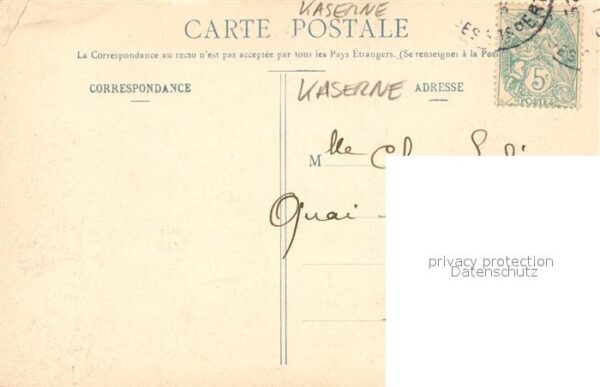 KASERNE
CARTE POSTALE
La Correspondance au recto n'est pas acceptée par tous les Pays Étrangers. (Se renseigner à la Pos
CORRESPONDANCE
KASERNE
ADRESSE
5c
POSTES
Mlle
Quai
privacy protection
Datenschutz